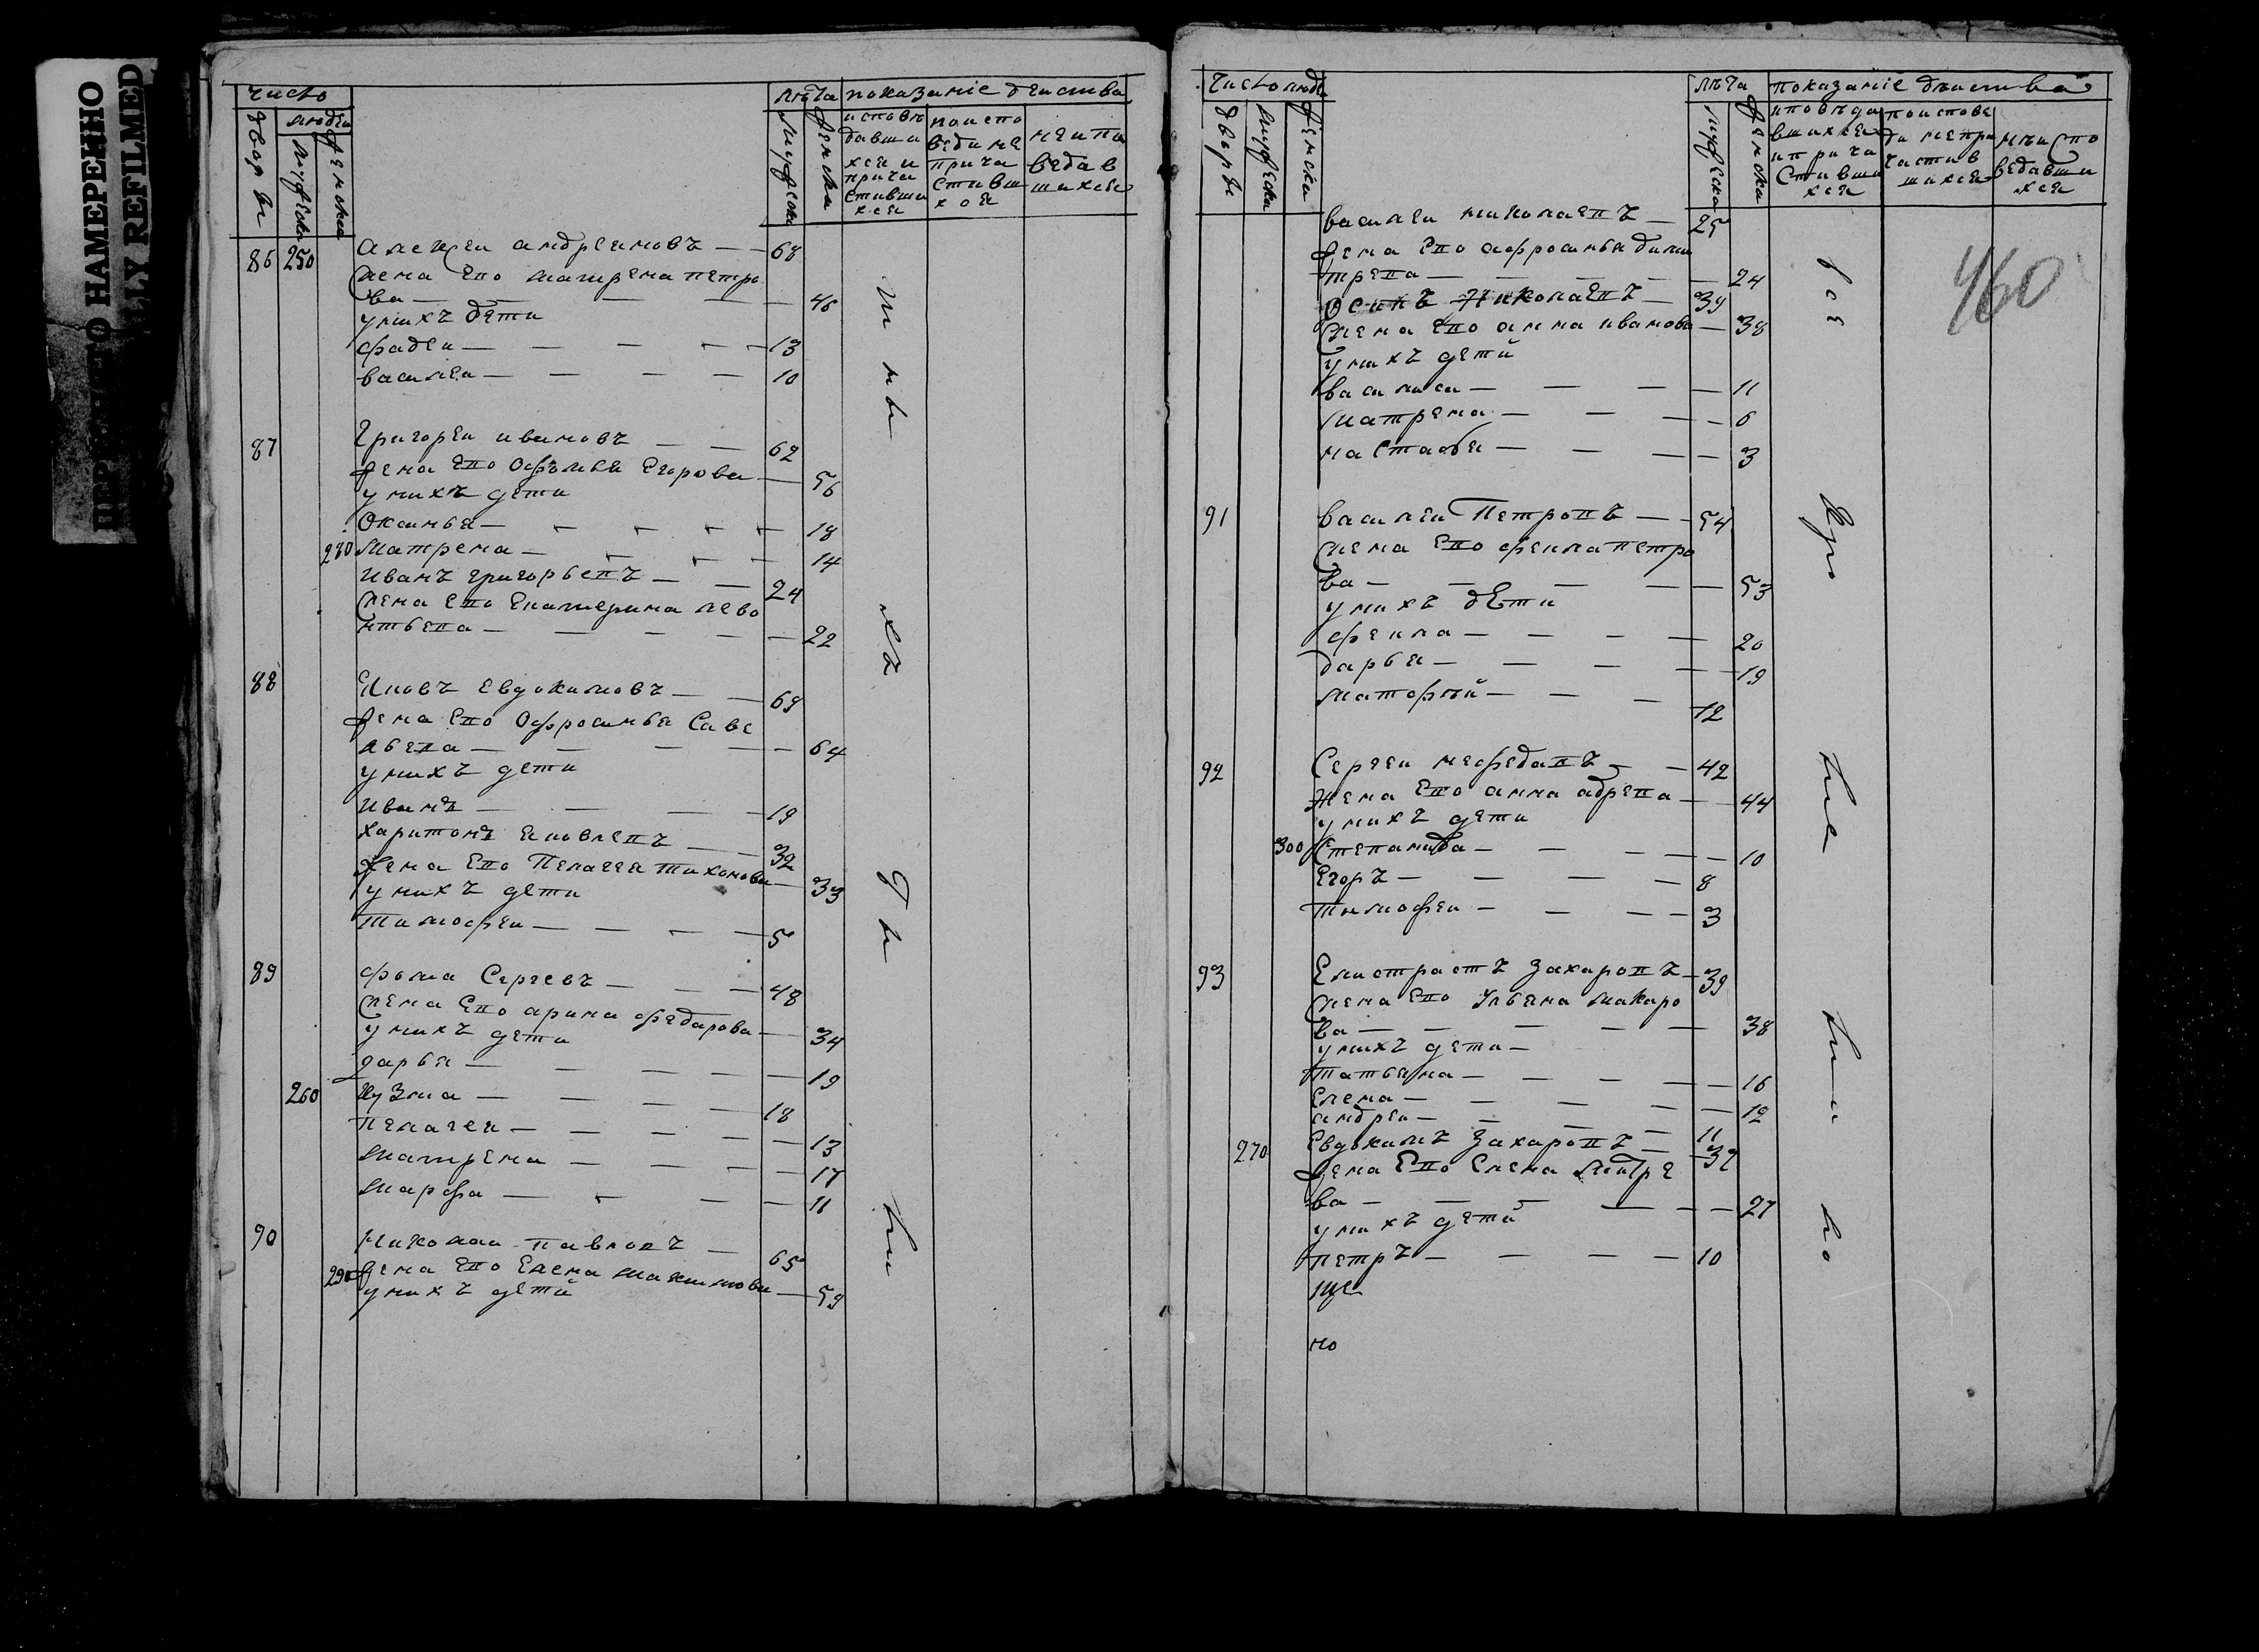 НАМЕРЕННО
LY REFILMED
число
людеи
дворвъ
мужеска
женска
лѣта
мужеска
женска
показание деиства
исповѣ
давши
хся и
прича
стивши
хся
поиспо
ведине
прича
стивш
хся
неипо
ведав
шихся
86 250 Алекѣи андреиновъ — — 68
жена Его матрена петро
ва — — — — 46
унихъ дети
фадеи — — — — 13
василеи — — — — 10
87 Григореи ивановъ — — 62
жена Его Офѣмья Егорова — 56
унихъ дети
Оксинья — — — — 18
280 Матрена — — — — 14
Иванъ григорьевъ — — 24
жена его Екатерина лево
нтьева — — — — 22
88 Яковъ Евдокимовъ — — 69
жена Его Офросинья Саве
льева — — — — 64
унихъ дети
Иванъ — — — 19
Харитонъ яковлевъ — — 32
жена Его Пелагея тихонова — 33
унихъ дети
Тимофеи — — — — 5
89 фома Сергевъ — — — 48
жена Его арина федарова — 34
унихъ дети
дарья — — — — 19
260 Кузма — — — — 18
пелагея — — — — 13
Матрена — — — — 17
Марфа — — — — 11
90 Николаи павловъ — 65
290 жена Его Елена максимова — 59
унихъ детй
число люде
дворвъ
мужеска
женска
лѣта
мужеска
женска
показание дѣиства
испове
ди непри
частив
шихся
василеи николаевъ — 25
жена Его афросинья дими
трева — — — — 24
Осипъ Николаевъ — 39
жена Его анна иванова — 38
унихъ детй
василиса — — — — 11
матрена — — — — 6
настасья — — — — 3
460
91 василеи Петровъ — — 54
жена Его фекла петро
ва — — — — 53
унихъ дети
фекла — — — — 20
дарья — — — — 19
матофѣй — — — 12
92 Сергеи мефедавъ — — 42
жена Его анна адрева — — 44
унихъ дети
300 Степанида — — — — 10
Егоръ — — — — 8
Тимофеи — — — — 3
93 Елистратъ Захаровъ — 39
жена Его Ульяна макаро
ва — — — — — 38
унихъ дети —
татьяна — — — — 16
Елена — — — — 12
андреи — — — — 11
270 Евдокимъ Захаровъ — 37
жена Его Елена
ва — — — — 27
унихъ детй
петръ — — — — 10
но